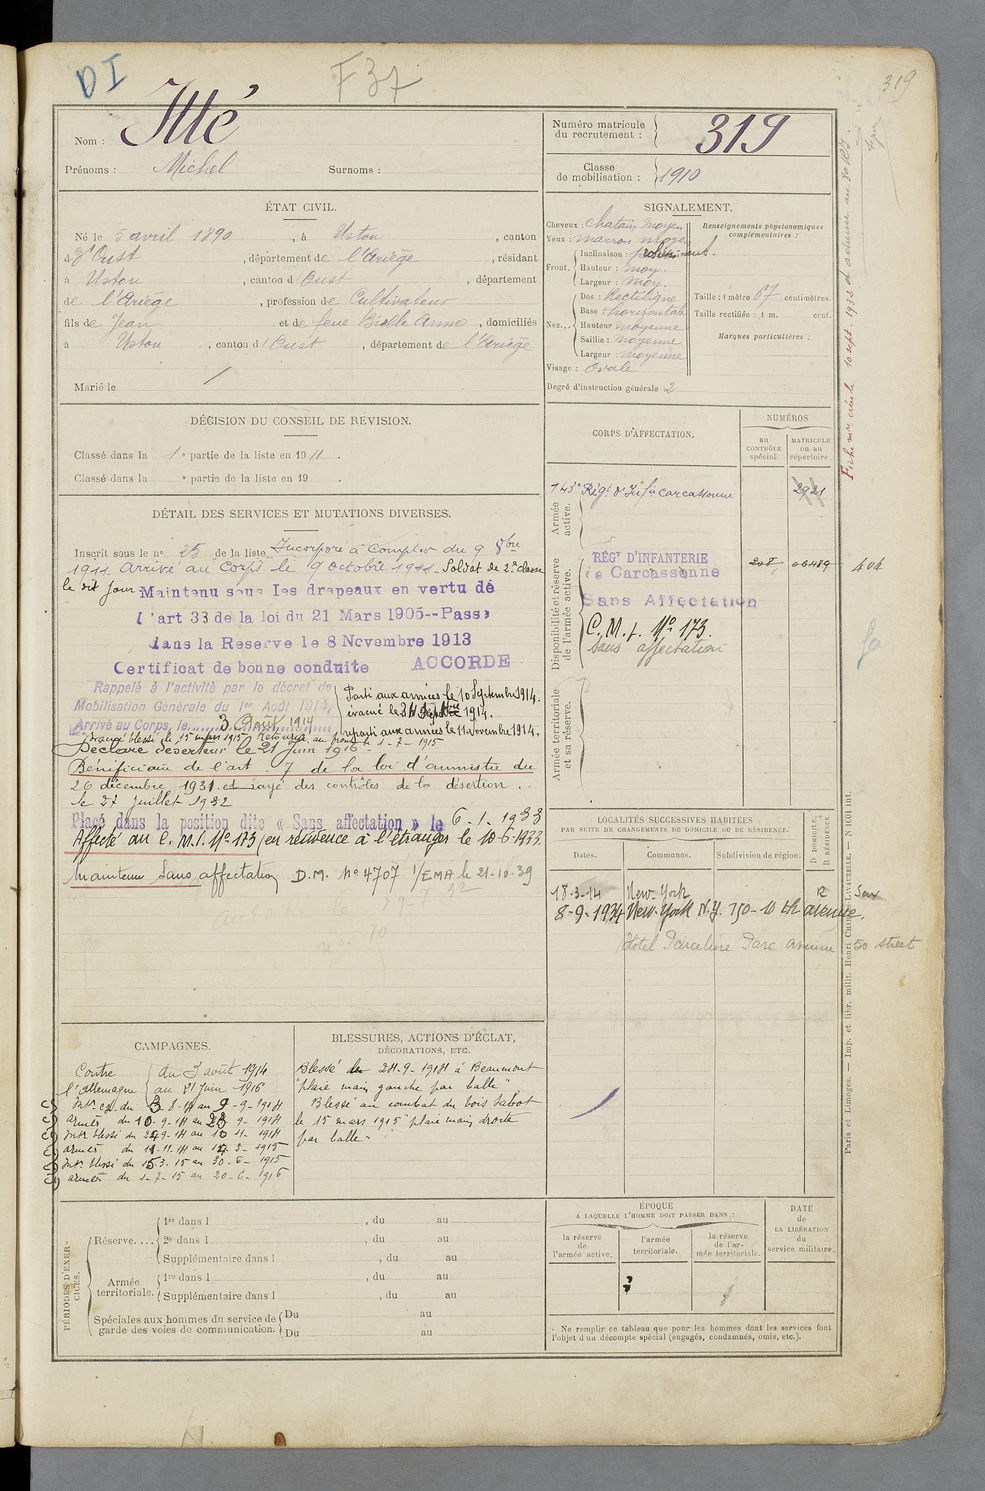 DI
F37
319
Nom : Itté
Prénoms : Michel Surnoms :
Numéro matricule du recrutement : 319
Classe de mobilisation : 1910
ÉTAT CIVIL.
Né le 5 avril 1890, à Ustou, canton
d'Oust, département de l'Ariège, résidant
à Ustou, canton d'Oust, département
de l'Ariège, profession de Cultivateur
fils de Jean et de feue Anne, domiciliés
à Ustou, canton d'Oust, département de l'Ariège
Marié le /
SIGNALEMENT.
Cheveux : chatain moyen
Yeux : marron moyen
Front. Inclinaison :
Hauteur : moy.
Largeur : moy.
Nez... Dos : Rectiligne
Base : horizontale
Hauteur moyenne
Saillie : moyenne
Largeur : moyenne
Visage : Ovale
Degré d'instruction générale 2
Renseignements physionomiques complémentaires :
Taille : 1 mètre 67 centimètres.
Taille rectifiée : 1 m. cent.
Marques particulières :
DÉCISION DU CONSEIL DE REVISION.
Classé dans la 1e partie de la liste en 1911.
Classé dans la e partie de la liste en 19 .
DÉTAIL DES SERVICES ET MUTATIONS DIVERSES.
Inscrit sous le no 25 de la liste Incorporé à compter du 9 8bre
1911. Arrivé au Corps le 9 octobre 1911. Soldat de 2e classe
le dit jour Maintenu sous les drapeaux en vertu de
l'art 33 de la loi du 21 Mars 1905--Passé
dans la Reserve le 8 Novembre 1913
Certificat de bonne conduite ACCORDE
Rappelé à l'activité par le décret de
Mobilisation Générale du 1er Août 1914,
Arrivé au Corps, le 3 Août 1914
Parti aux armées le 10 Septembre 1914.
évacué le 24 1914.
reparti aux armées le 11 novembre 1914.
Evacué blessé le 15 mars 1915 Retourné au front le 1-7-1915
Déclaré déserteur le 21 Juin 1916
Bénéficiaire de l'art. 7 de la loi d'amnistie du
26 décembre 1931 et rayé des contrôles de la désertion
le 27 Juillet 1932
Placé dans la position dite « Sans affectation » le 6-1-1933
Affecté au C.M.I. No 173 (en résidence à l'étranger le 10-6-1933
Maintenu Sans affectation D.M. No 4707 1/EMA le 21-10-39
CORPS D'AFFECTATION.
NUMÉROS
AU CONTRÔLE spécial.
MATRICULE ou au répertoire.
Armée active.
143e Régt d'Infie Carcassonne 2921
Disponibilité et réserve de l'armée active.
RÉGt D'INFANTERIE
de Carcassonne 208 06489 404
Sans Affectation
C.M.I. No 173.
Sans affectation
Armée territoriale et sa réserve.
LOCALITÉS SUCCESSIVES HABITÉES
PAR SUITE DE CHANGEMENTS DE DOMICILE OU DE RÉSIDENCE.
Dates. Communes. Subdivision de région. D. DOMICILE. R. RÉSIDENCE.
18-3-14 New-York R
8-9-1934 New-York N.Y. 750-10 th avenue.
Hotel Parc avenue 50 street
CAMPAGNES.
Contre l'Allemagne du 3 août 1914
au 21 Juin 1916
Intr cp. du 3-8-14 au 9-9-1914
armées du 10-9-14 au 23-9-1914
Intr blessé du 24-9-14 au 10-11-1914
armées du 11-11-14 au 14-3-1915
Intr blessé du 15-3-15 au 30-6-1915
armées du 1-7-15 au 20-6-1916
BLESSURES, ACTIONS D'ÉCLAT,
DÉCORATIONS, ETC.
Blessé le 24-9-1914 à Beaumont
"plaie main gauche par balle".
Blessé au combat du bois Sabot
le 15 mars 1915 "plaie main droite
par balle"
PÉRIODES D'EXERCICES.
Réserve.... 1re dans l , du au
2e dans l , du au
Supplémentaire dans l , du au
Armée territoriale. 1re dans l , du au
Supplémentaire dans l , du au
Spéciales aux hommes du service de garde des voies de communication. Du au
Du au
ÉPOQUE
A LAQUELLE L'HOMME DOIT PASSER DANS :
la réserve de l'armée active.
l'armée territoriale.
la réserve de l'armée territoriale.
DATE de LA LIBÉRATION du service militaire.
- Ne remplir ce tableau que pour les hommes dont les services font
l'objet d'un décompte spécial (engagés, condamnés, omis, etc.).
Paris et Limoges. — Imp. et libr. milit. Henri CHARLES-LAVAUZELLE. — N 1601 int.